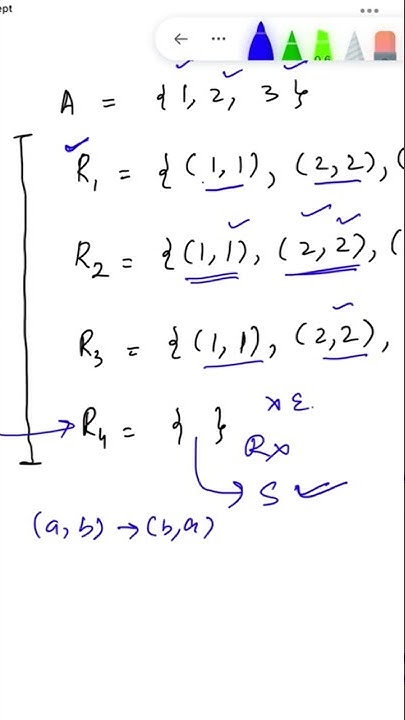 ept
A = {1, 2, 3}
R₁ = {(1,1), (2,2), (
R₂ = {(1,1), (2,2), (
R₃ = {(1,1), (2,2),
R₄ = { } × E.
R×
S ✓
(a, b) → (b, a)